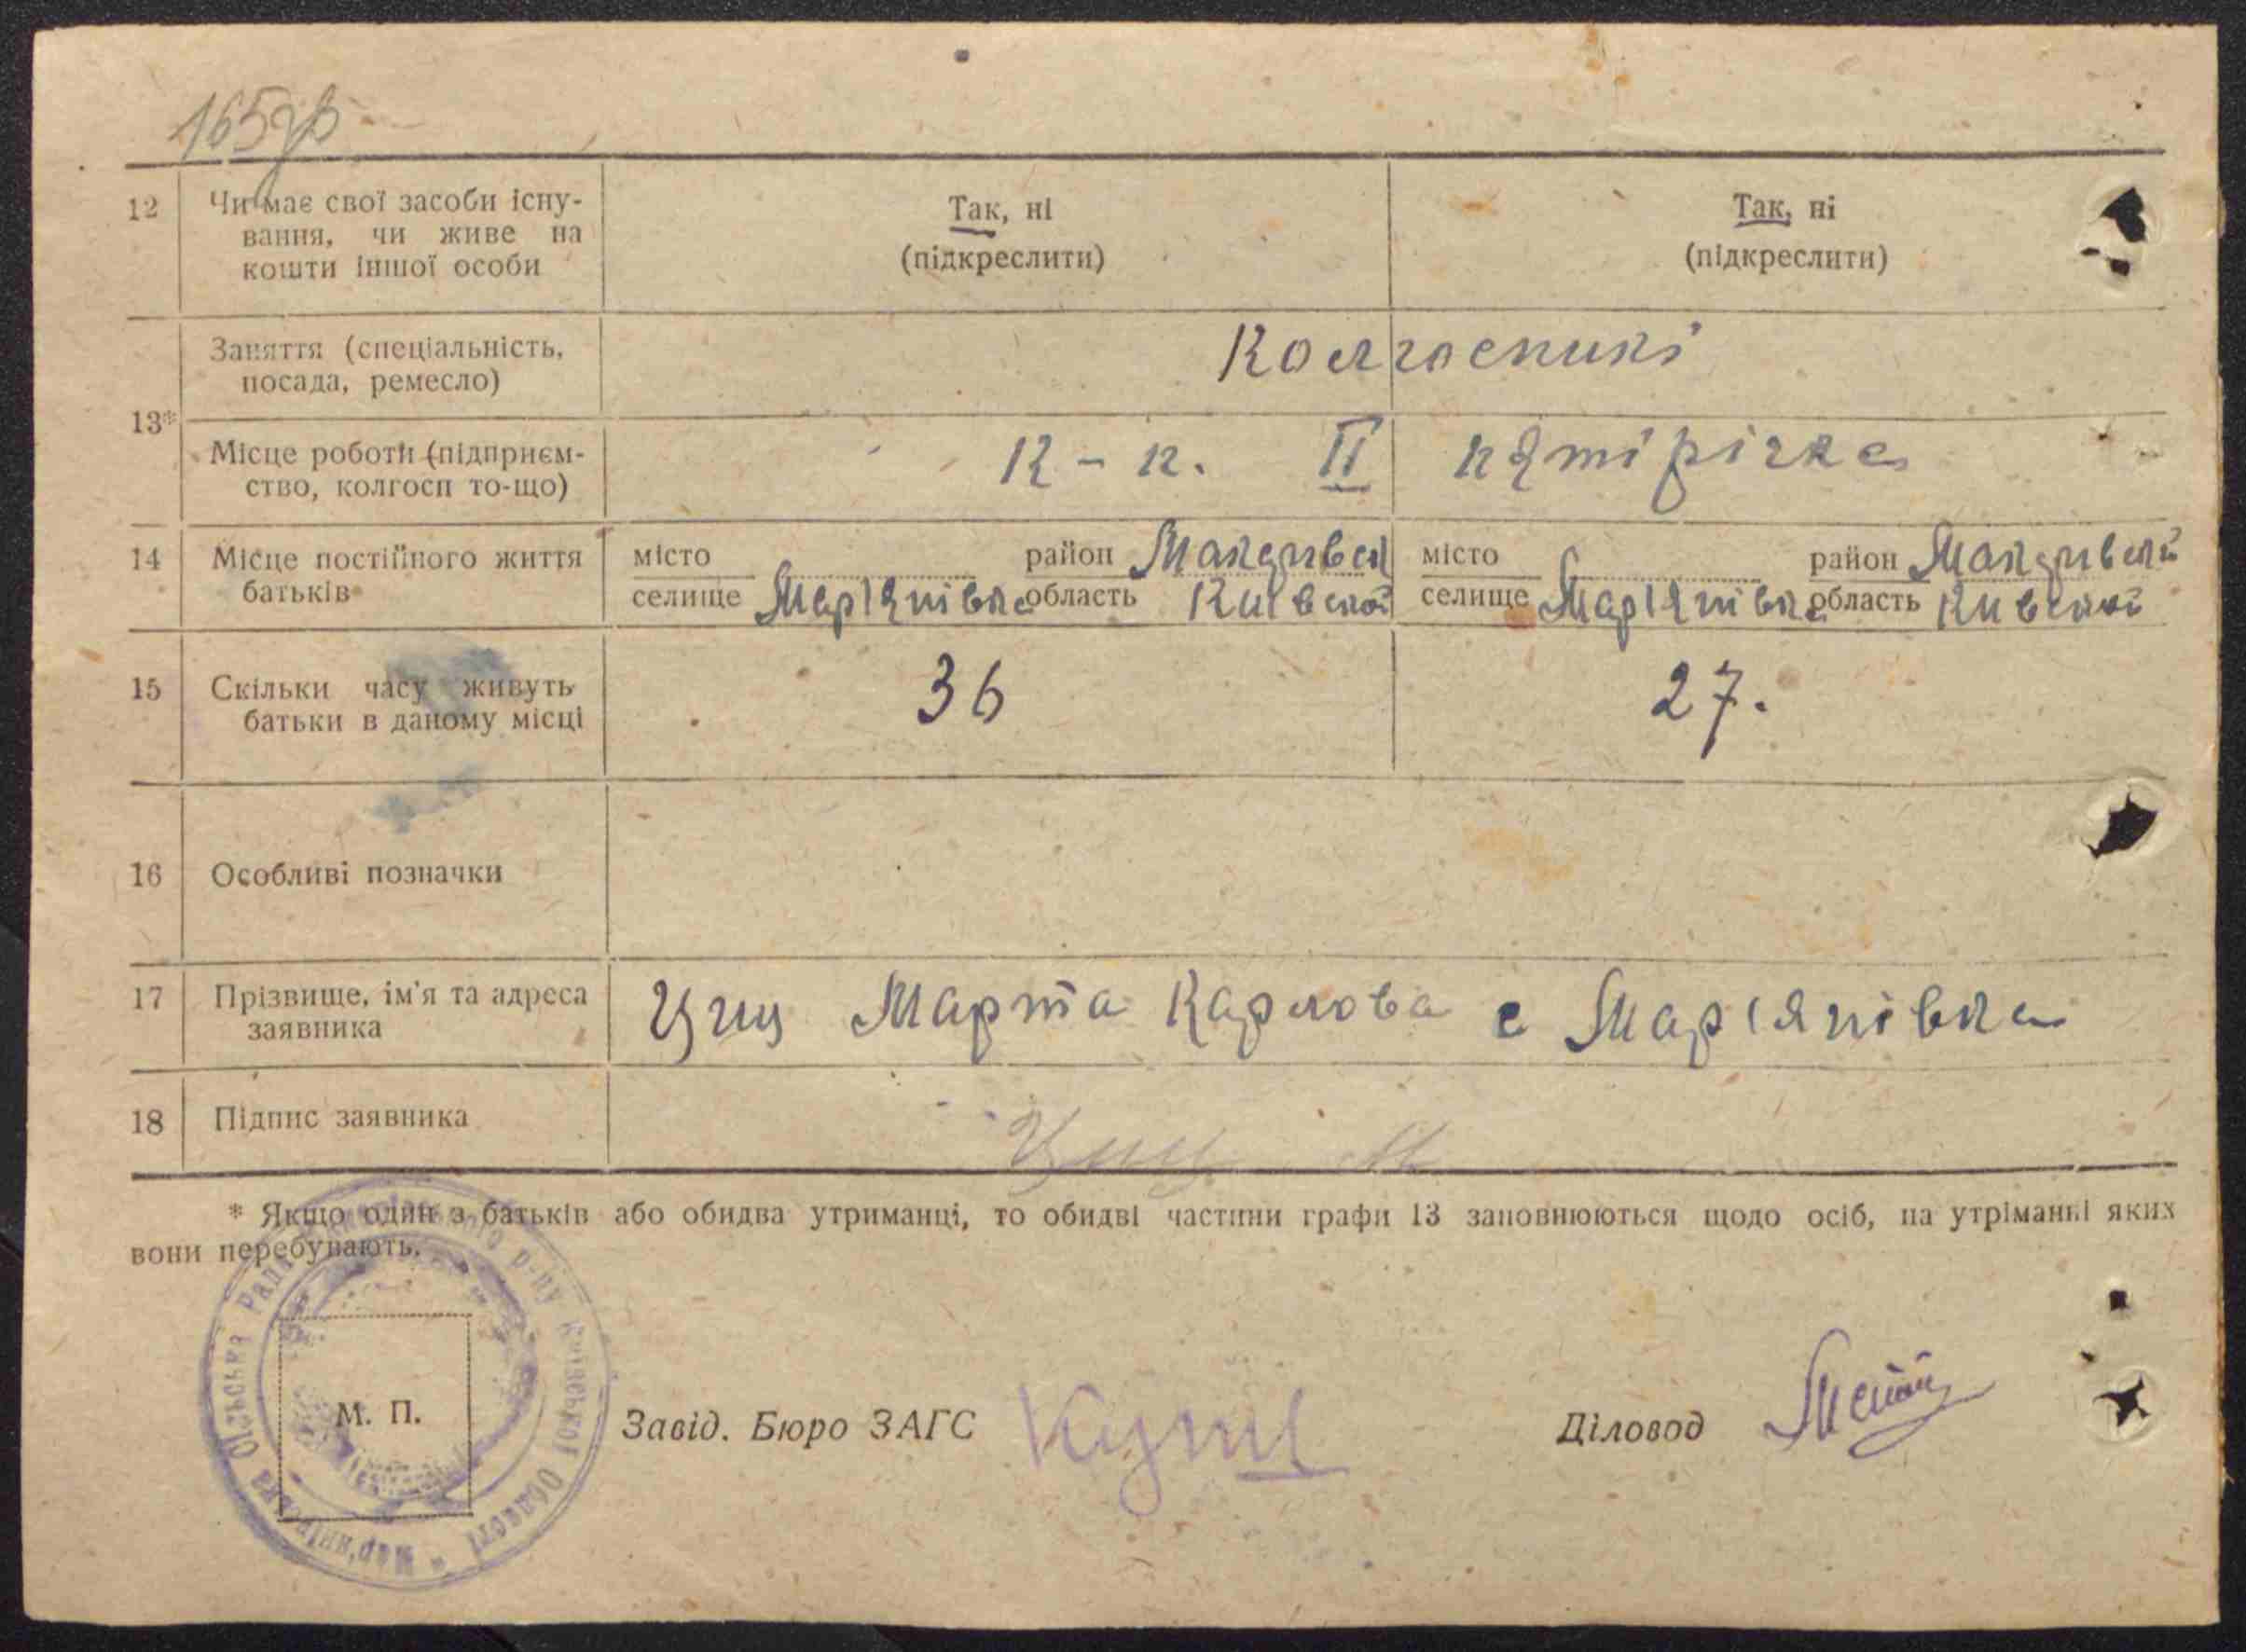 165зв
12 Чи має свої засоби існу- Так, ні Так, ні
вання, чи живе на (підкреслити) (підкреслити)
кошти іншої особи
13* Заняття (спеціальність, Колгоспникі
посада, ремесло)
Місце роботи (підприєм- К-п. ІІ пятірічка
ство, колгосп то-що)
14 Місце постійного життя місто район Макарівськ місто район Макарівський
батьків селище Мар'янівка область Київської селище Мар'янівка область Київської
15 Скільки часу живуть 36 27.
батьки в даному місці
16 Особливі позначки
17 Прізвище, ім'я та адреса Циц Марта Карлова с Мар'янівка
заявника
18 Підпис заявника Циц М
* Якщо один з батьків або обидва утриманці, то обидві частини графи 13 заповнюються щодо осіб, на утріманні яких
вони перебувають.
Мар'янівська Сільська Рада р-ну Київської Області
М. П. Завід. Бюро ЗАГС Діловод